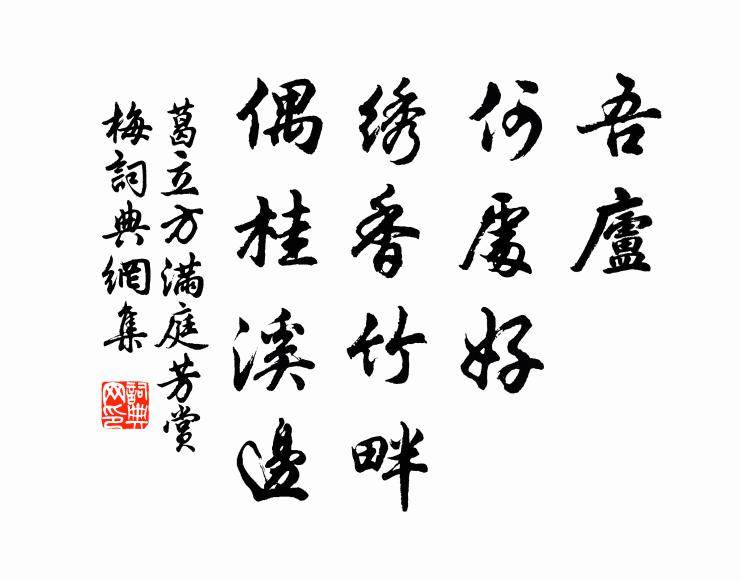 吾廬
何處好
綉香竹畔
偶桂溪邊
葛立方滿庭芳賞
梅詞典網集
詞典
网印